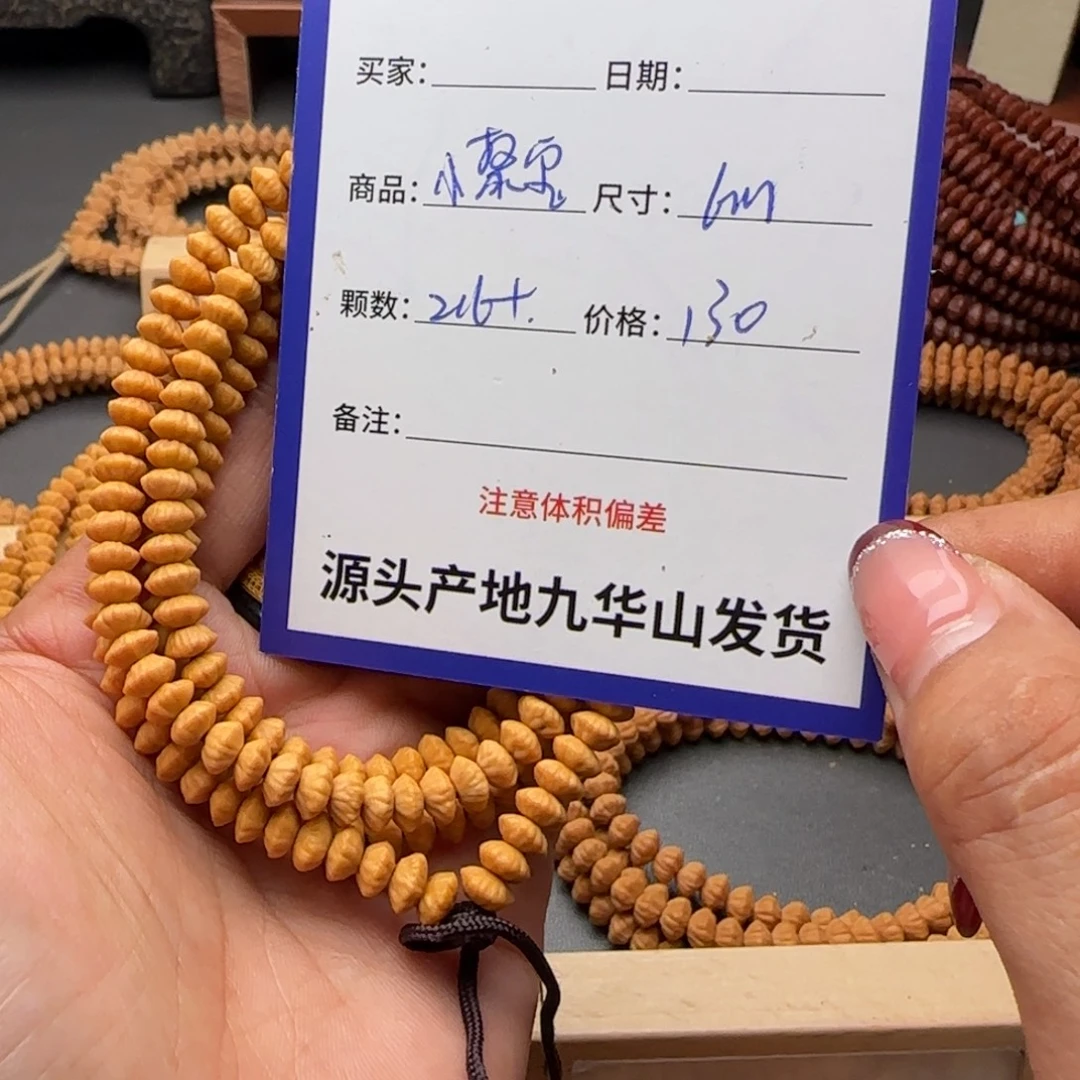 买家： 日期：
商品： 小 尺寸： 6m
颗数： 216+ 价格： 130
备注：
注意体积偏差
源头产地九华山发货